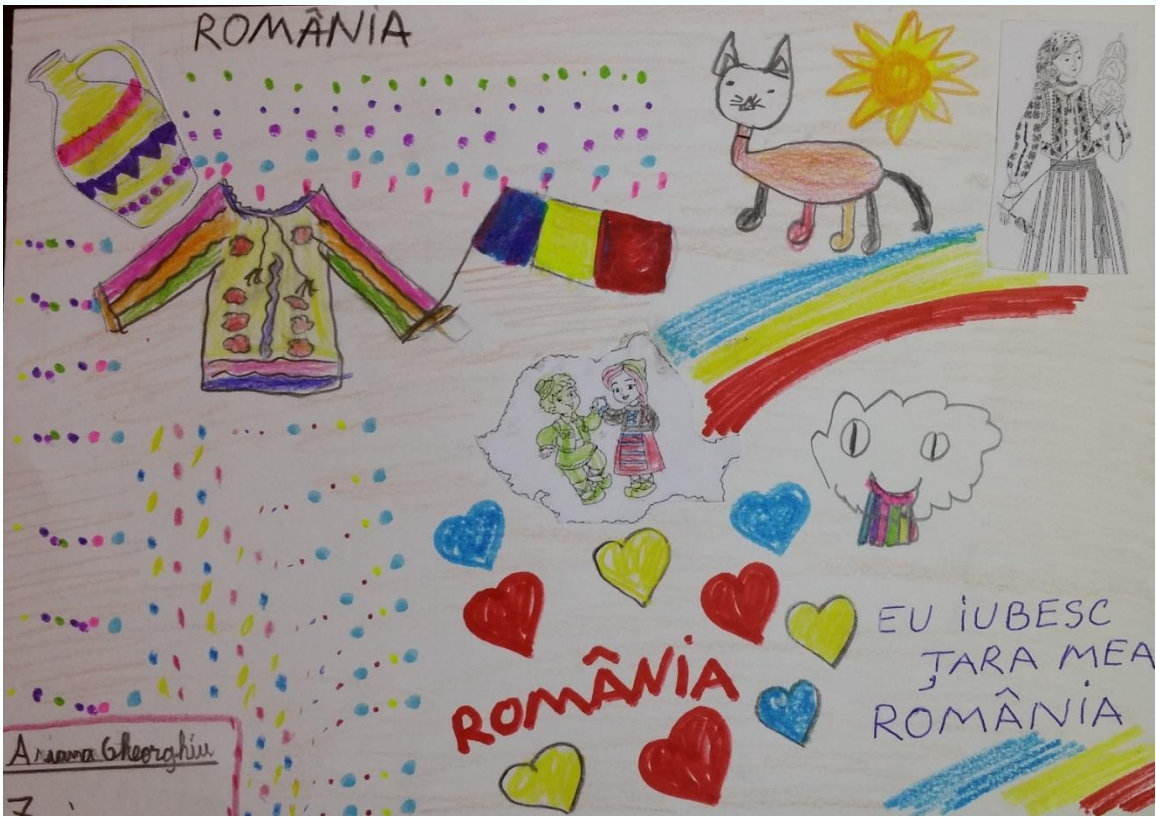 ROMÂNIA
ROMÂNIA
EU IUBESC
ȚARA MEA
ROMÂNIA
Ariana Gheorghiu
7